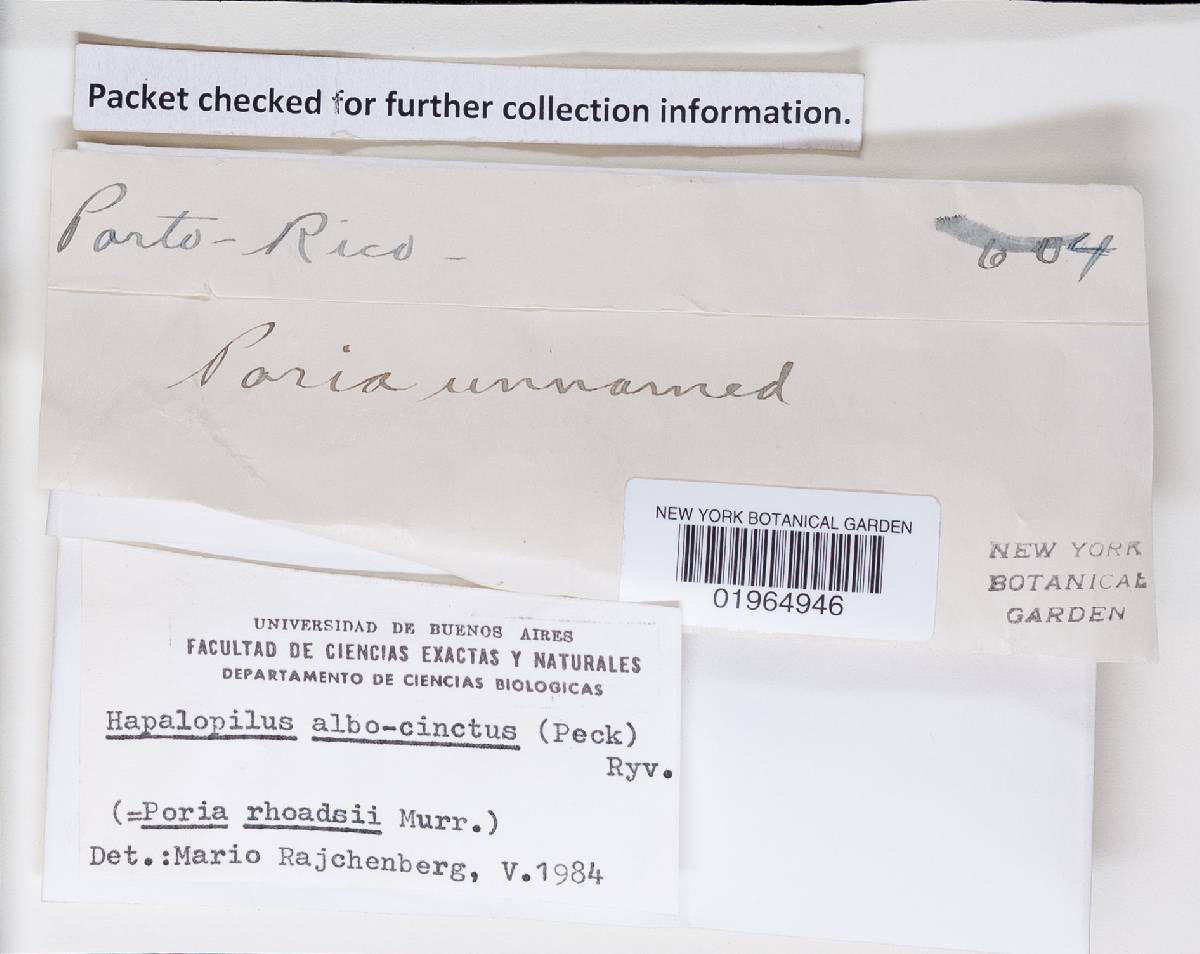 Packet checked for further collection information.
Porto-Rico -
604
Poria unnamed
NEW YORK BOTANICAL GARDEN
01964946
NEW YORK
BOTANICAL
GARDEN
UNIVERSIDAD DE BUENOS AIRES
FACULTAD DE CIENCIAS EXACTAS Y NATURALES
DEPARTAMENTO DE CIENCIAS BIOLOGICAS
Hapalopilus albo-cinctus (Peck)
Ryv.
(=Poria rhoadsii Murr.)
Det.:Mario Rajchenberg, V.1984